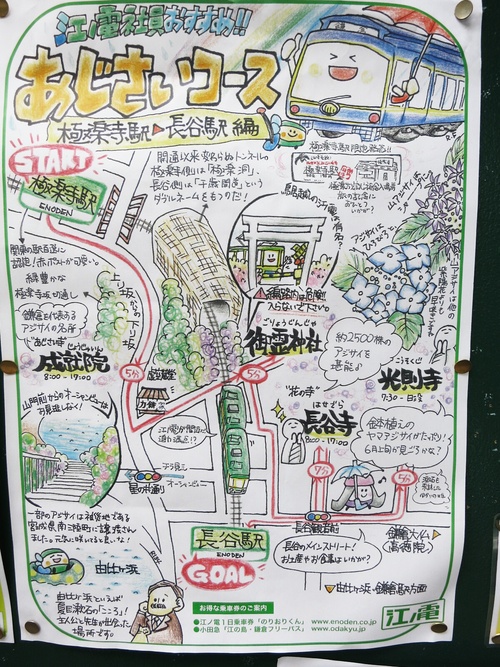 江ノ電社員おすすめ!!
あじさいコース
極楽寺駅▶長谷駅編
START
極楽寺駅
ENODEN
開通以来変らぬトンネルの
極楽寺側は「極楽洞」、
長谷側は「千歳開道」という
ヴァレネームをもつだ!
緑豊かな
極楽寺坂切通し
鎌倉を代表する
アジサイの名所
"あじさい寺"
じょうじゅいん
成就院
8:00-17:00
山門前からオーシャンビューは
お見逃しなく!
上り坂からの下り坂
5分
力餅
ごりょうじんじゃ
御霊神社
5分
約2500株の
アジサイを
堪能♪
"花の寺"
はせでら
長谷寺
8:00-17:00
こうそくじ
光則寺
7:30-日没
アジサイは
山アジサイは他の
金木植えの
ヤマアジサイがたっぷり!
6月上旬が見ごろかな?
7分
5分
オーシャンビュー
一部のアジサイは祖貨地である
宮城県南三陸町に譲渡さん
ました。元気に咲いてると良いな!
由比ヶ浜
由比ヶ浜といえば
夏目漱石の「こころ」!
主人公と先生が出会った
場所です。
長谷駅
ENODEN
GOAL
長谷観音前
長谷のメインストリート!
お土産やお食事はいかが?
鎌倉大仏▷
(高徳院)
▽由比ヶ浜・鎌倉駅方面
お得な乗車券のご案内
●江ノ電1日乗車券「のりおりくん」 www.enoden.co.jp
●小田急「江の島・鎌倉フリーパス」 www.odakyu.jp
江ノ電